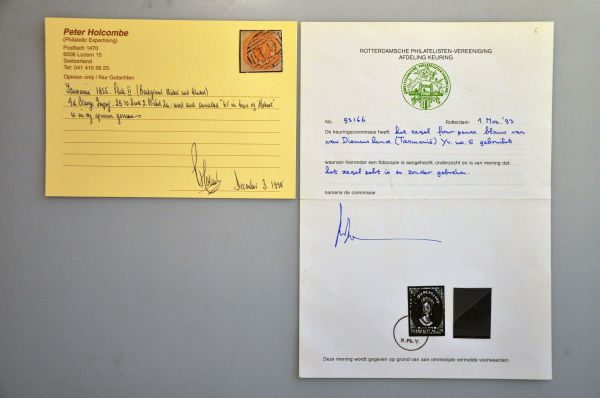 Peter Holcombe
(Philatelic Expertising)
Postfach 1470
6006 Luzern 15
Switzerland
Tel: 041 410 56 25
Opinion only / Nur Gutachten
Tasmania 1855. Plate II
4d Orange
is in my opinion genuine
December 3 1998
ROTTERDAMSCHE PHILATELISTEN-VEREENIGING
AFDELING KEURING
No. 93166 Rotterdam: 1 Mrt. '93
De keuringscommissie heeft: het zegel four pence blauw van
van Diemensland (Tasmanië) Yv. no. 5 gebruikt
waarvan hieronder een fotocopie is aangehecht, onderzocht en is van mening dat:
het zegel echt is en zonder gebreken.
namens de commissie
R.Ph.V.
Deze mening wordt gegeven op grond van aan ommezijde vermelde voorwaarden.